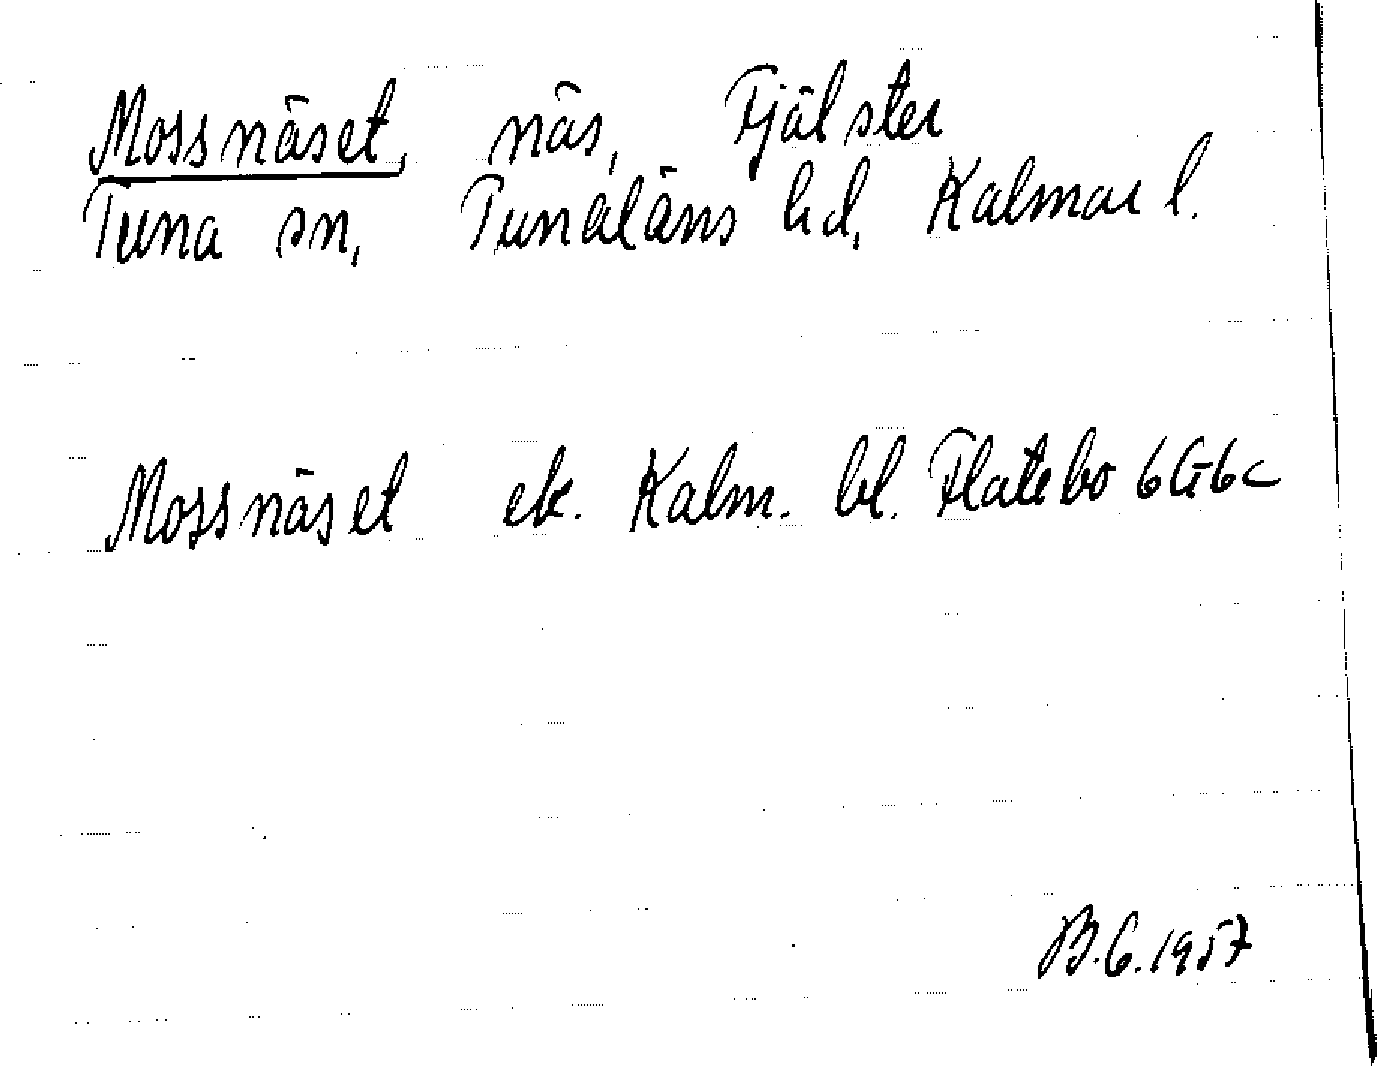 Mossnäset, näs, Fjälster
Tuna sn, Tunaläns hd, Kalmar l.
Mossnäset ek. Kalm. bl. Flatebo 6G6c
B.G. 1957